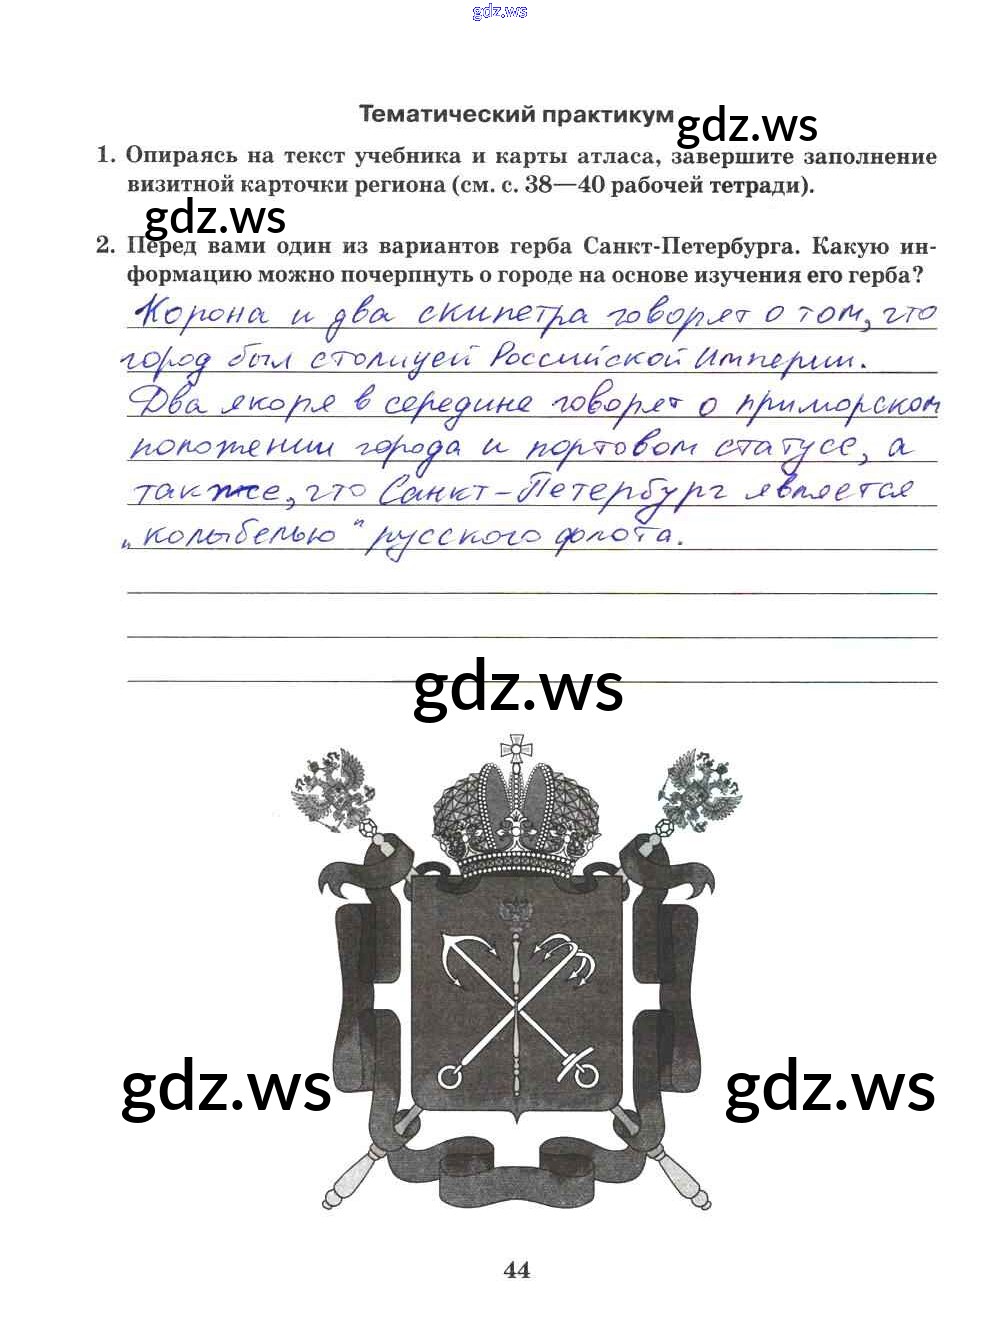 gdz.ws
Тематический практикум
gdz.ws
1. Опираясь на текст учебника и карты атласа, завершите заполнение
визитной карточки региона (см. с. 38—40 рабочей тетради).
gdz.ws
2. Перед вами один из вариантов герба Санкт-Петербурга. Какую ин-
формацию можно почерпнуть о городе на основе изучения его герба?
Корона и два скипетра говорят о том, что
город был столицей Российской Империи.
Два якоря в середине говорят о приморском
положении города и портовом статусе, а
также, что Санкт-Петербург является
„колыбелью" русского флота.
gdz.ws
gdz.ws
gdz.ws
44